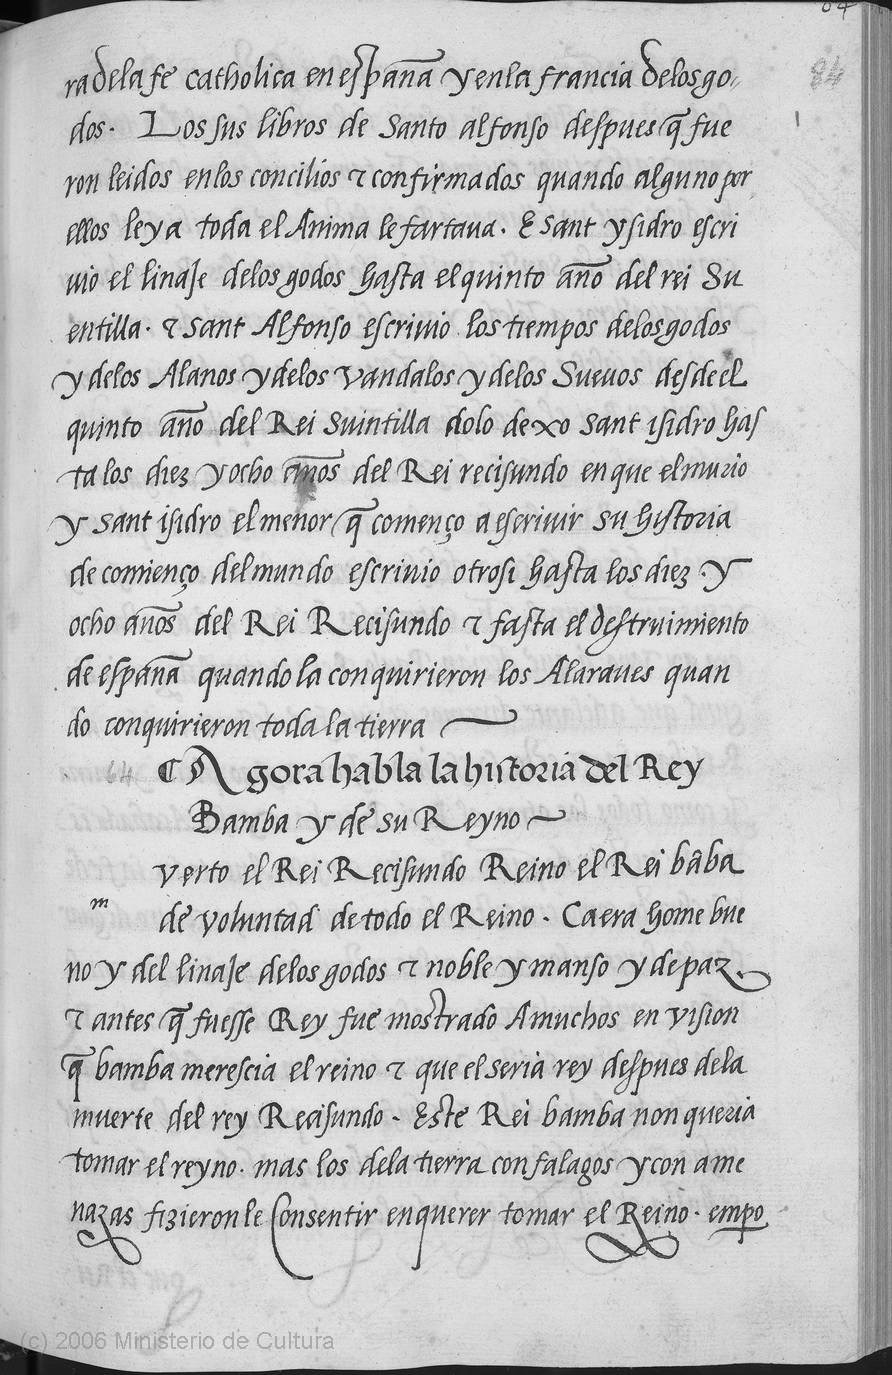 64
84
ra dela fe catholica en españa y enla francia delos go-
dos. Los sus libros de Santo alfonso despues q̃ fue
ron leidos enlos concilios τ confirmados quando alguno por
ellos leya toda el Anima le fartaua. E sant ysidro escri
uio el linaje delos godos hasta el quinto año del rei Su
entilla. τ sant Alfonso escriuio los tiempos delos godos
y delos Alanos y delos Vandalos y delos Sueuos desde el
quinto año del Rei Suintilla dolo dexo sant isidro has
ta los diez y ocho años del Rei recisundo en que el murio
y sant isidro el menor q̃ començo a escriuir su historia
de comienço del mundo escriuio otrosi hasta los diez y
ocho años del Rei Recisundo τ fasta el destruimiento
de españa quando la conquirieron los Alaraues quan
do conquirieron toda la tierra
64 ¶ Agora habla la historia del Rey
Bamba y de su Reyno
m verto el Rei Recisundo Reino el Rei bãba
de voluntad de todo el Reino. Ca era home bue
no y del linaje delos godos τ noble y manso y de paz.
τ antes q̃ fuesse Rey fue mostrado A muchos en vision
q̃ bamba merescia el reino τ que el seria rey despues dela
muerte del rey Recisundo. Este Rei bamba non queria
tomar el reyno. mas los dela tierra con falagos y con ame
nazas fizieronle Consentir en querer tomar el Reino. empo
(c) 2006 Ministerio de Cultura